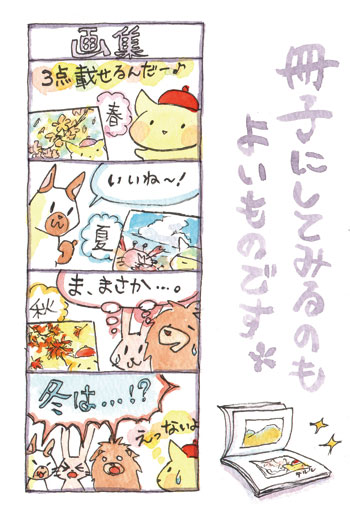 画集
3点載せるんだー♪
春
いいね〜!
夏
ま、まさか…。
秋
冬は…!?
えっないよ
冊子にしてみるのも
よいものです*